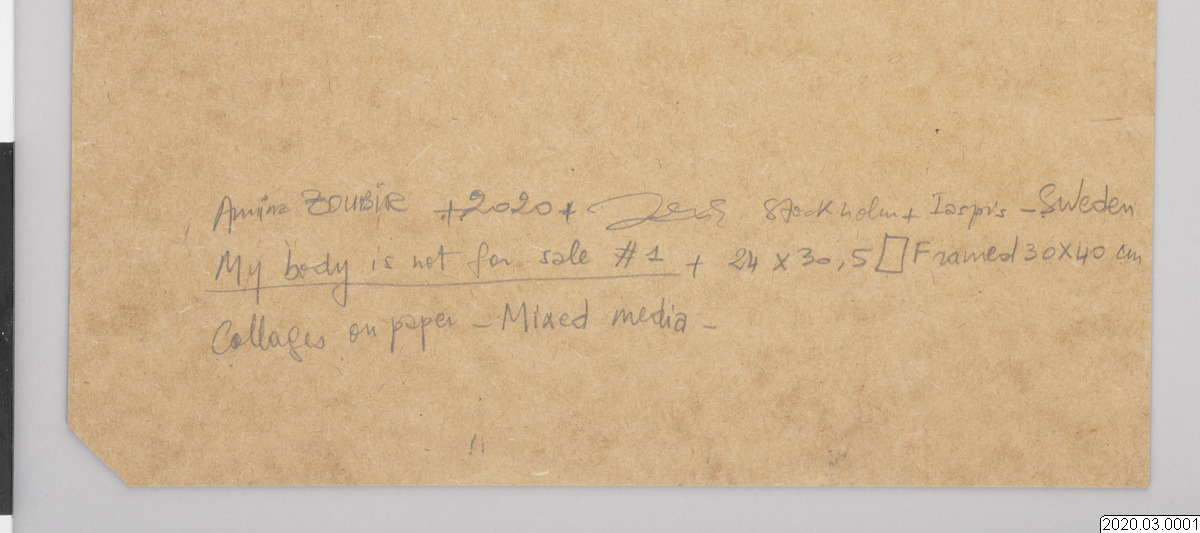 Amina ZOUBIR +2020+ Stockholm + Iaspis - Sweden
My body is not for sale #1 + 24 x 30,5 Framed 30x40 cm
Collages on paper - Mixed media -
2020.03.0001